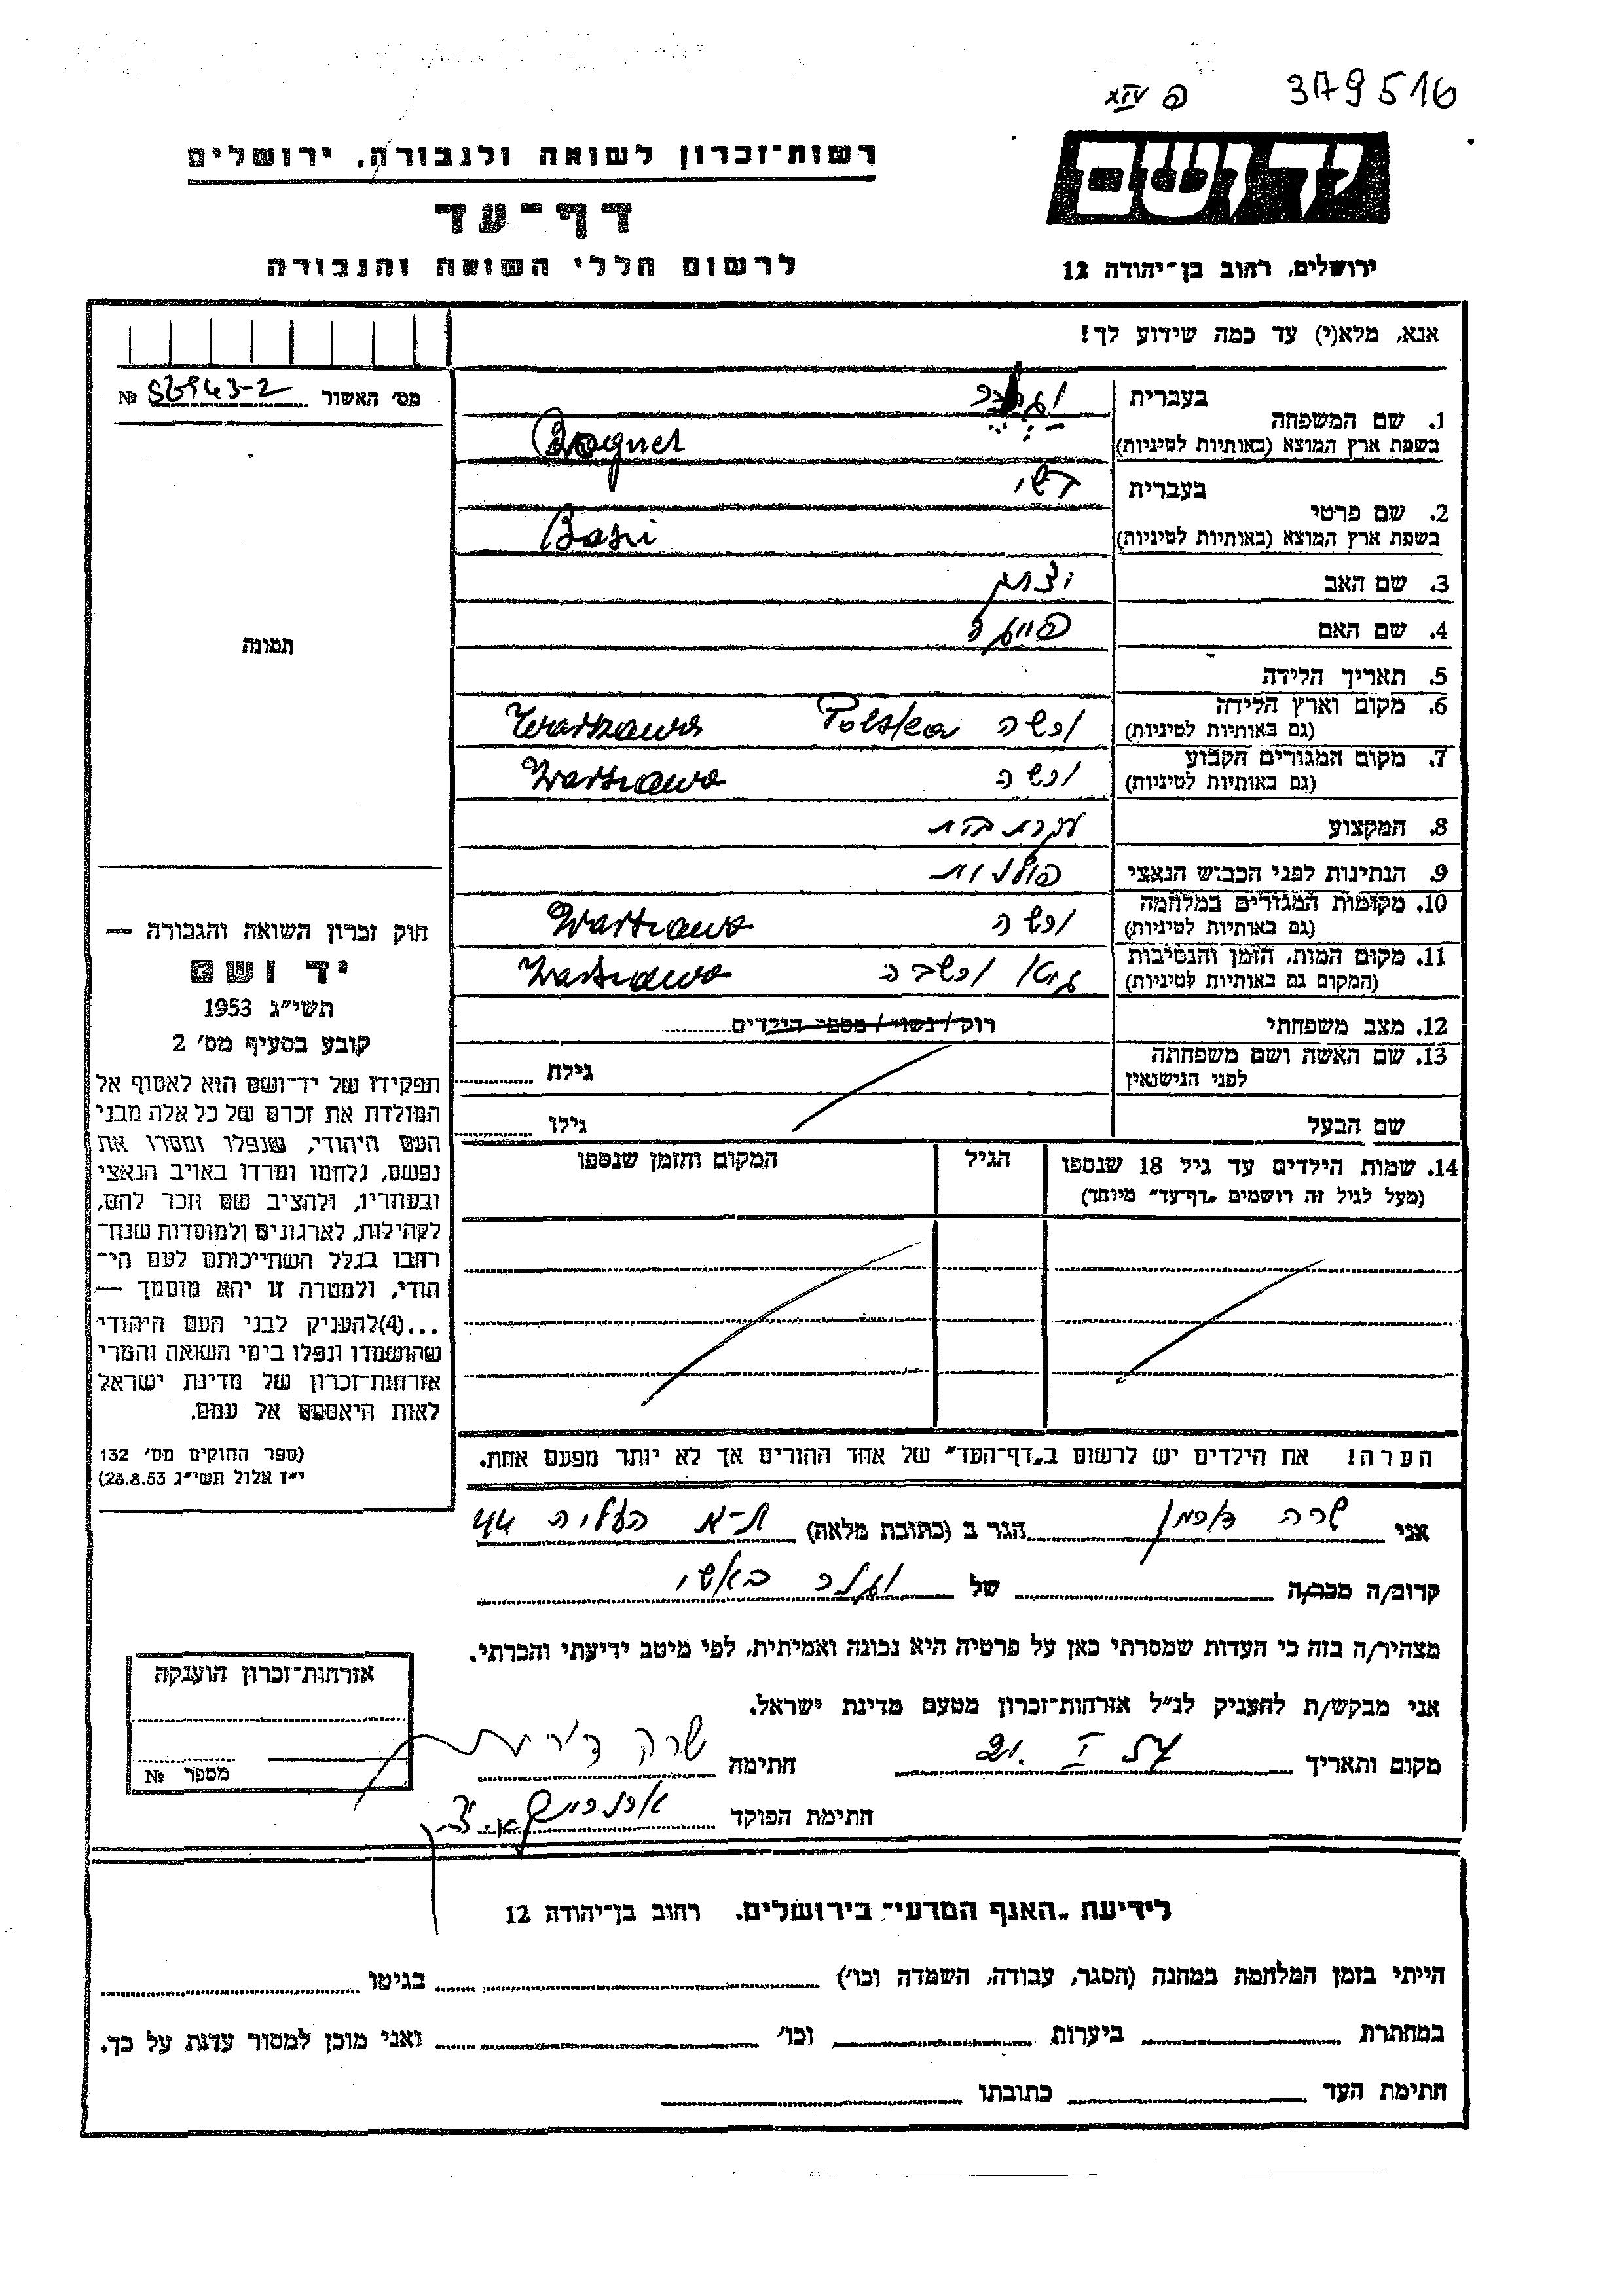 379516
רשות־זכרון לשואה ולגבורה, ירושלים
יד ושם
דף־עד
לרשום חללי השואה והגבורה
ירושלים, רחוב בן־יהודה 12
אנא, מלא(י) עד כמה שידוע לך!
מס׳ האשור №
1. שם המשפחה
בעברית
בשפת ארץ המוצא (באותיות לטיניות)
2. שם פרטי
בעברית
בשפת ארץ המוצא (באותיות לטיניות) Basi
3. שם האב
4. שם האם
5. תאריך הלידה
6. מקום וארץ הלידה ורשה Polska Warszawa
(גם באותיות לטיניות)
7. מקום המגורים הקבוע ורשה Warszawa
(גם באותיות לטיניות)
8. המקצוע עקרת בית
9. הנתינות לפני הכבוש הנאצי פולנית
10. מקומות המגורים במלחמה ורשה Warszawa
(גם באותיות לטיניות)
11. מקום המות, הזמן והנסיבות גיטו ורשה Warszawa
(המקום גם באותיות לטיניות)
12. מצב משפחתי רוק/נשוי/מספר הילדים
13. שם האשה ושם משפחתה
לפני הנישואין
גילה
שם הבעל גילו
14. שמות הילדים עד גיל 18 שנספו הגיל המקום והזמן שנספו
(מעל לגיל זה רושמים „דף־עד״ מיוחד)
הערה! את הילדים יש לרשום ב„דף־העד״ של אחד ההורים אך לא יותר מפעם אחת.
תמונה
חוק זכרון השואה והגבורה —
יד ושם
תשי״ג 1953
קובע בסעיף מס׳ 2
תפקידו של יד־ושם הוא לאסוף אל
המולדת את זכרם של כל אלה מבני
העם היהודי, שנפלו ומסרו את
נפשם, נלחמו ומרדו באויב הנאצי
ובעוזריו, ולהציב שם וזכר להם,
לקהילות, לארגונים ולמוסדות שנח־
רחבו בגלל השתייכותם לעם הי־
הודי, ולמטרה זו יהא מוסמך —
...(4)להעניק לבני העם היהודי
שהושמדו ונפלו בימי השואה והמרי
אזרחות־זכרון של מדינת ישראל
לאות היאספם אל עמם.
(ספר החוקים מס׳ 132
י״ז אלול תשי״ג 28.8.53)
אני שרה הגר ב (כתובת מלאה) ת-א העליה 44
קרוב/ה מכר/ה של באשי
מצהיר/ה בזה כי העדות שמסרתי כאן על פרטיה היא נכונה ואמיתית, לפי מיטב ידיעתי והכרתי.
אני מבקש/ת להעניק לנ״ל אזרחות־זכרון מטעם מדינת ישראל.
מקום ותאריך חתימה שרה
חתימת הפוקד
אזרחות־זכרון הוענקה
מספר №
לידיעת „האגף המדעי״ בירושלים, רחוב בן־יהודה 12
הייתי בזמן המלחמה במחנה (הסגר, עבודה, השמדה וכו׳) בגיטו
במחתרת ביערות וכו׳ ואני מוכן למסור עדות על כך.
חתימת העד כתובתו